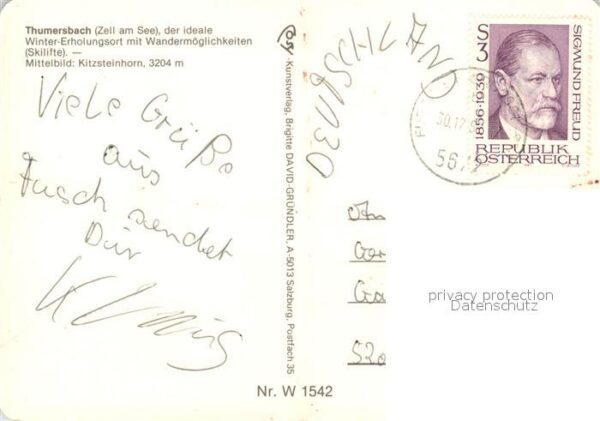 Thumersbach (Zell am See), der ideale
Winter-Erholungsort mit Wandermöglichkeiten
(Skilifte). —
Mittelbild: Kitzsteinhorn, 3204 m
Viele Grüße
aus
Fusch sendet
Dir
Kunstverlag, Brigitte DAVID-GRÜNDLER, A-5013 Salzburg, Postfach 35
Nr. W 1542
S3
1856-1939
SIGMUND FREUD
REPUBLIK
ÖSTERREICH
30.12
567
privacy protection
Datenschutz